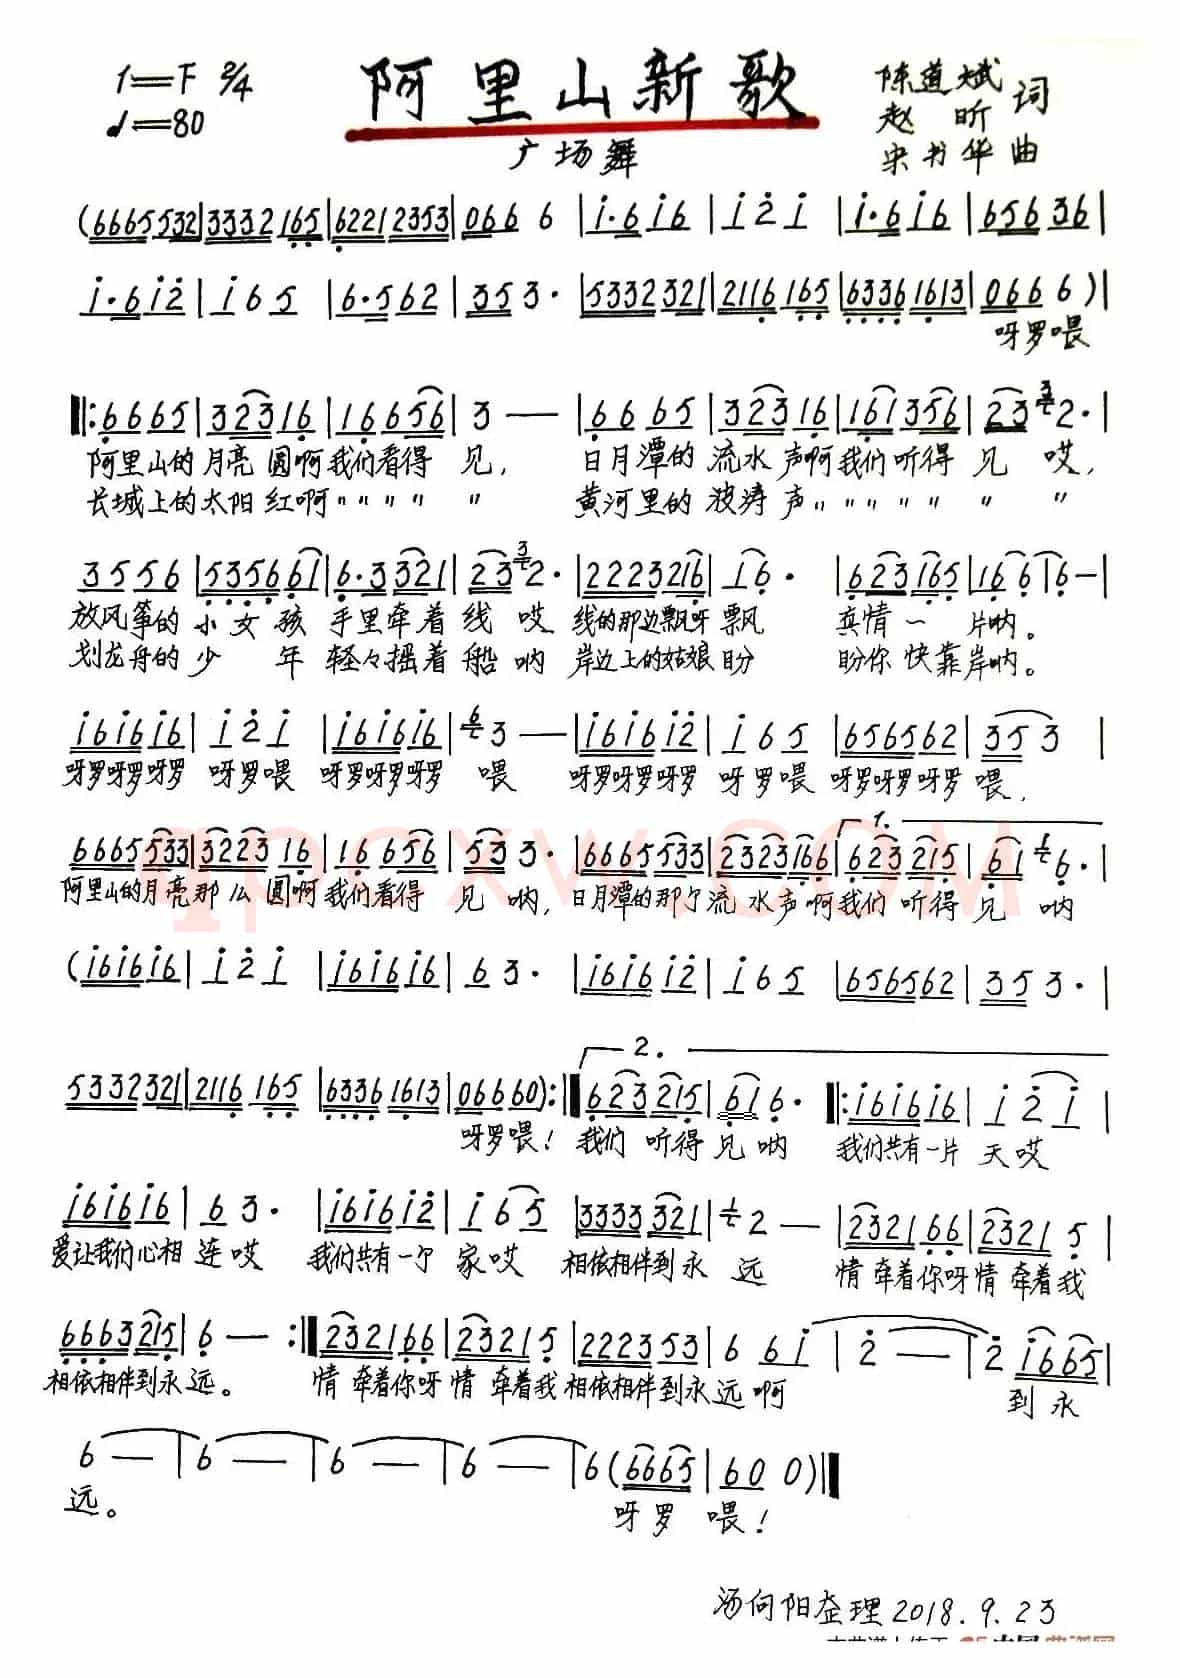 1=F 2/4 阿里山新歌 陈道斌
赵昕 词
♩=80 广场舞 宋书华 曲
(6665532|3332165|62212353|0666|i·6i6|i2i|i·6i6|65636|
i·6i2|i65|6·562|353·|5332321|2116165|63361613|0666)|
呀罗喂
‖:6665|32316|16656|3—|6665|32316|161356|2332·|
阿里山的月亮圆啊我们看得见, 日月潭的流水声啊我们听得见哎,
长城上的太阳红啊〃〃〃〃〃 黄河里的波涛声〃〃〃〃〃〃
3556|535661|6·3321|2332·|2223216|16·|623165|166|16—|
放风筝的小女孩手里牵着线哎线的那边飘呀飘真情一片呐。
划龙舟的少年轻々摇着船呐岸边上的姑娘盼盼你快靠岸呐。
i6i6i6|i2i|i6i6i6|63—|i6i6i2|i65|656562|353|
呀罗呀罗呀罗呀罗喂呀罗呀罗呀罗喂呀罗呀罗呀罗呀罗喂呀罗呀罗呀罗喂,
1.
6665533|322316|16656|533·|6665533|2323166|623215|6166·|
阿里山的月亮那么圆啊我们看得见呐,日月潭的那个流水声啊我们听得见呐
(i6i6i6|i2i|i6i6i6|63·|i6i6i2|i65|656562|353·|
2.
5332321|2116165|63361613|066660):‖623215|616·‖:i6i6i6|i2i|
呀罗喂!我们听得见呐我们共有一片天哎
i6i6i6|63·|i6i6i2|i65|3333321|12—|232166|23215|
爱让我们心相连哎我们共有一个家哎相依相伴到永远情牵着你呀情牵着我
6663215|6—:‖232166|23215|2223553|66i|2—|2i665|
相依相伴到永远。情牵着你呀情牵着我相依相伴到永远啊到永
6—|6—|6—|6—|6(6665|600)‖
远。 呀罗喂!
汤向阳整理2018.9.23
qpcxw.COM